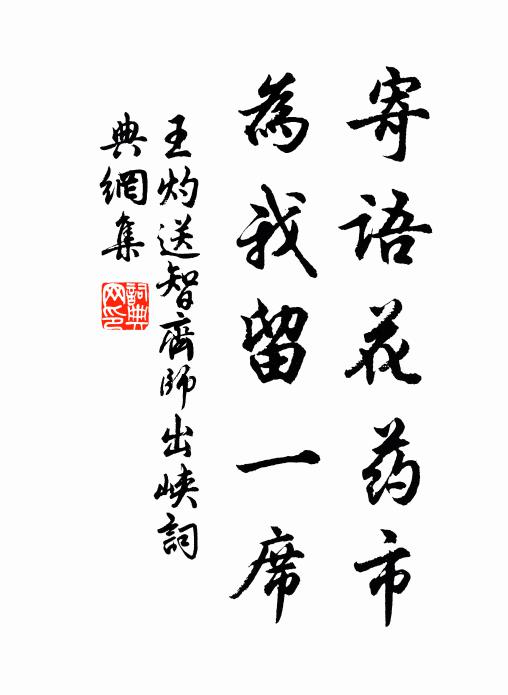 寄语花药市
為我留一席
王灼送智齊師出峽詞
典網集
詞典网印